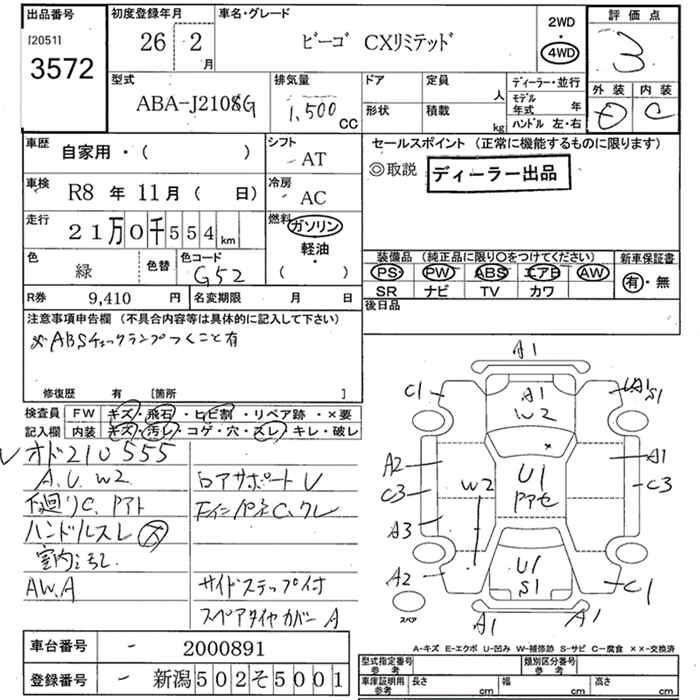 出品番号
[2051]
3572
初度登録年月
26 年 2 月
車名・グレード
ビーゴ CXリミテッド
2WD
・
4WD
評価点
3
外装 内装
D C
型式
ABA-J210G
排気量
1,500 CC
ドア 定員 人
形状 積載 kg
ディーラー・並行
モデル年式 年
ハンドル 左・右
車歴
自家用・( )
シフト
AT
車検
R8 年 11月 ( 日)
冷房
AC
走行
21万0千554km
燃料
ガソリン
・
軽油
・
( )
色
緑
色替
色コード
G52
R券 9,410 円
名変期限 月 日
セールスポイント (正常に機能するものに限ります)
◎取説 ディーラー出品
装備品 (純正品に限り○をつけてください)
PS PW ABS エアB AW
SR ナビ TV カワ
新車保証書
有・無
後日品
注意事項申告欄 (不具合内容等は具体的に記入して下さい)
※ABSチェックランプつくこと有
修復歴 有 [箇所 ]
検査員記入欄
FW キズ・飛石・ヒビ割・リペア跡・×要
内装 キズ・汚レ・コゲ・穴・スレ・キレ・破レ
レオド210555
A.U.W2
下廻りC.Pアト
ハンドルスレ
室内汚レ
AW.A
ロアサポートU
Fインパネ C.クレ
サイドステップ付
スペアタイヤカバーA
A1
C1
A1
W2
UA1
S1
A2
C3
A3
A2
W2
U1
Pアセ
A1
C3
U1
S1
C1
A1
A1
スペア
A-キズ E-エクボ U-凹み W-補修跡 S-サビ C-腐食 ××-交換済
車台番号 - 2000891
登録番号 - 新潟502そ5001
型式指定番号 参考
類別区分番号 参考
車庫証明用 参考
長さ cm 幅 cm 高さ cm